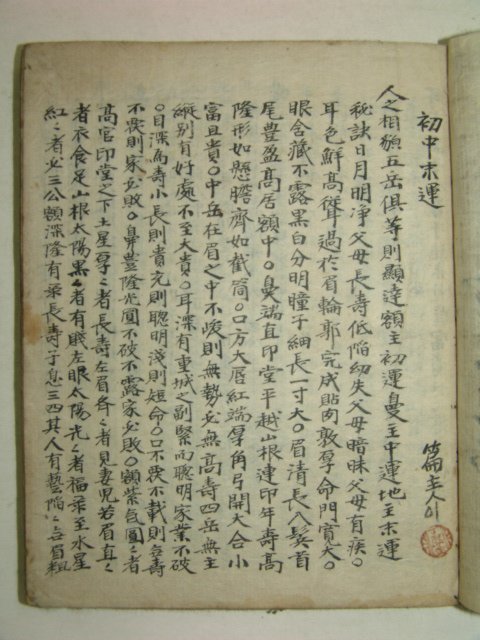 初中末運
篇主人
人之相額五岳俱等則顯達額主初運鼻主中運地主末運
秘訣日月明净父母長壽低陷幼失父母暗昧父母有疾○
耳色鮮高聳過於眉輪郭完成貼肉敦厚命門寬大○
眼含藏不露黑白分明瞳子細長一寸大○眉清長入鬓首
尾豊盈高居額中○鼻端直印堂平越山根連印年壽高
隆形如懸膽齊如截筒○口方大唇紅端厚角弓開大合小
富且貴○中岳在眉之中不峻則無勢必無高壽四岳無主
縱別有好處不至大貴○耳深有重城之副緊而聰明家業不破
○目深為壽小長則貴光則聰明淺則短命○口不丧不載則多壽
不丧則家必敗○鼻豊隆光圓不破不露家必敗○額紫氣圓者
高官印堂之下土星厚々者長壽左眉脊々者見妻児若眉直々
者衣食足山根太陽黑々者有賤左眼太陽光々者福祿至水星
紅々者必三公額深隆有祿長壽子息三四其人有藝陷々者眉粗